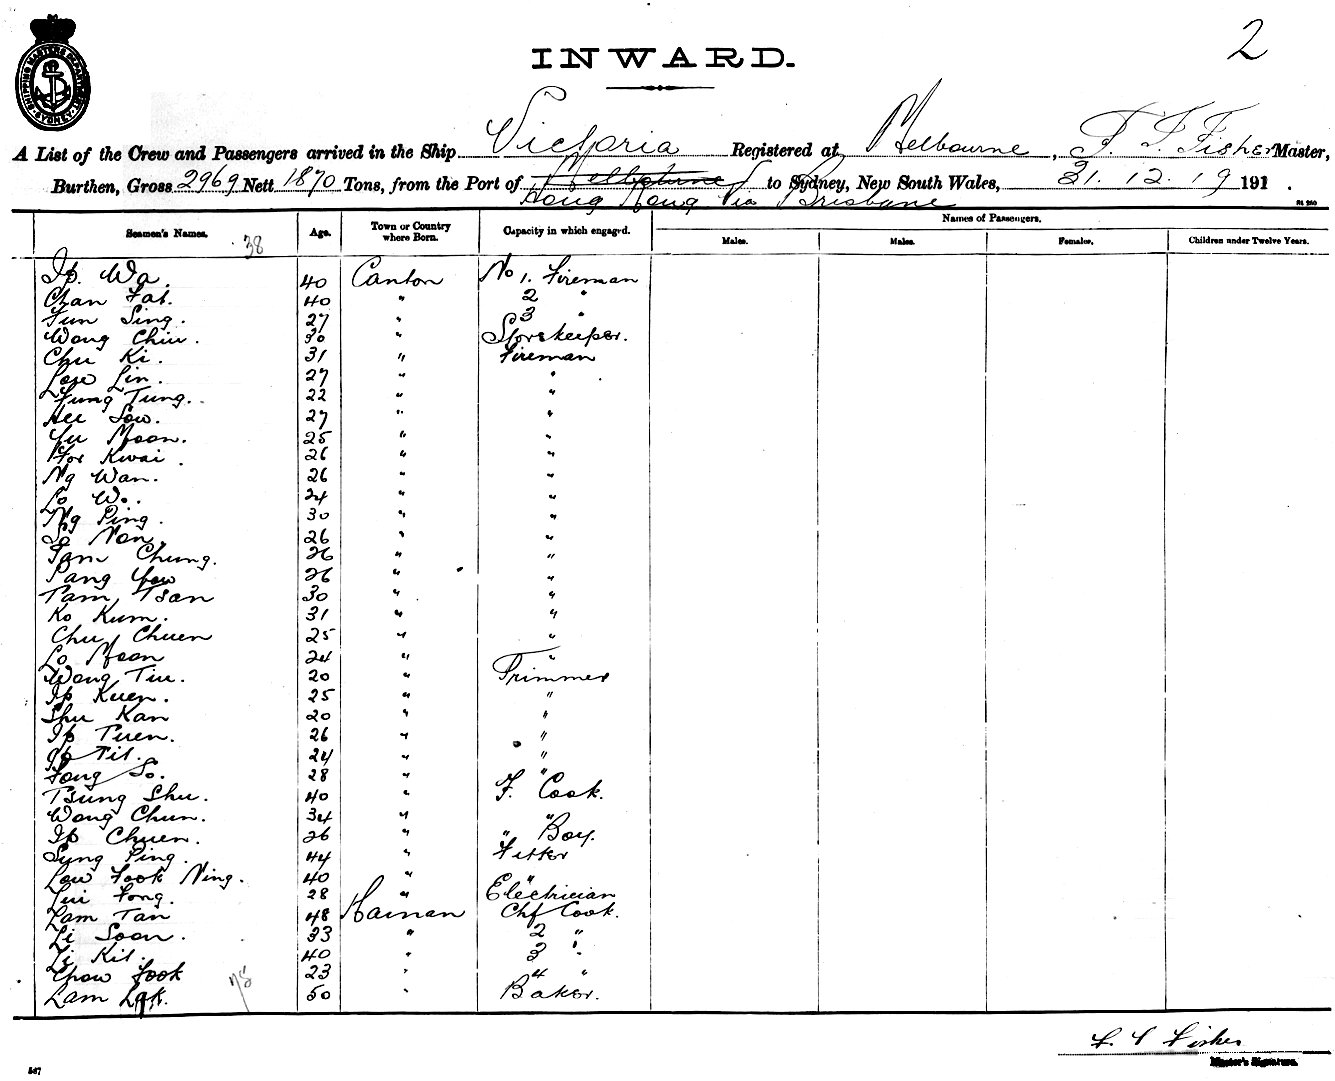 SHIPPING MASTERS DEPARTMENT SYDNEY
2
INWARD.
A List of the Crew and Passengers arrived in the Ship Victoria Registered at Melbourne, Fisher Master,
Burthen, Gross 2969 Nett 1870 Tons, from the Port of Melbourne to Sydney, New South Wales, 31.12.19 191 .
Hong Kong Via Brisbane
Seamen's Names. Age. Town or Country where Born. Capacity in which engaged. Names of Passengers.
Males. Males. Females. Children under Twelve Years.
38
Ip. Wa. 40 Canton No 1. Fireman
Chan Fat. 40 " 2 "
Fun Sing. 27 " 3 "
Wong Chiu. 30 " Storekeeper.
Chu Ki. 31 " Fireman
Lin. 27 " "
Fung Tung. 22 " "
Sow. 27 " "
Yu Moon. 25 " "
Kwai. 26 " "
Ng Wan. 26 " "
Lo Wo. 24 " "
Ng Ping. 30 " "
So Non. 26 " "
Tam Chung. 26 " "
Pang Yow 26 " "
Tam Tsan 30 " "
Ko Kum. 31 " "
Chu Chuen 25 " "
Lo Moon 24 " "
Wong Tiu. 20 " Trimmer
Ip Kuen. 25 " "
Shu Kan 20 " "
Ip Tuen. 26 " "
Ip Tit. 24 " "
Fong So. 28 " "
Tsung Shu. 40 " F. Cook.
Wong Chun. 34 " "
Ip Chuen. 26 " " Boy.
Sung Ping. 44 " Fitter
Low Fook Ning. 40 " "
Lui Fong. 28 " Electrician
Lam Tan 48 Hainan Chf Cook.
Li Soon. 33 " 2 "
Li Kit. 40 " 3 "
Chow Fook 23 " 4 "
Lam 50 " Baker.
Fisher
Master's Signature.